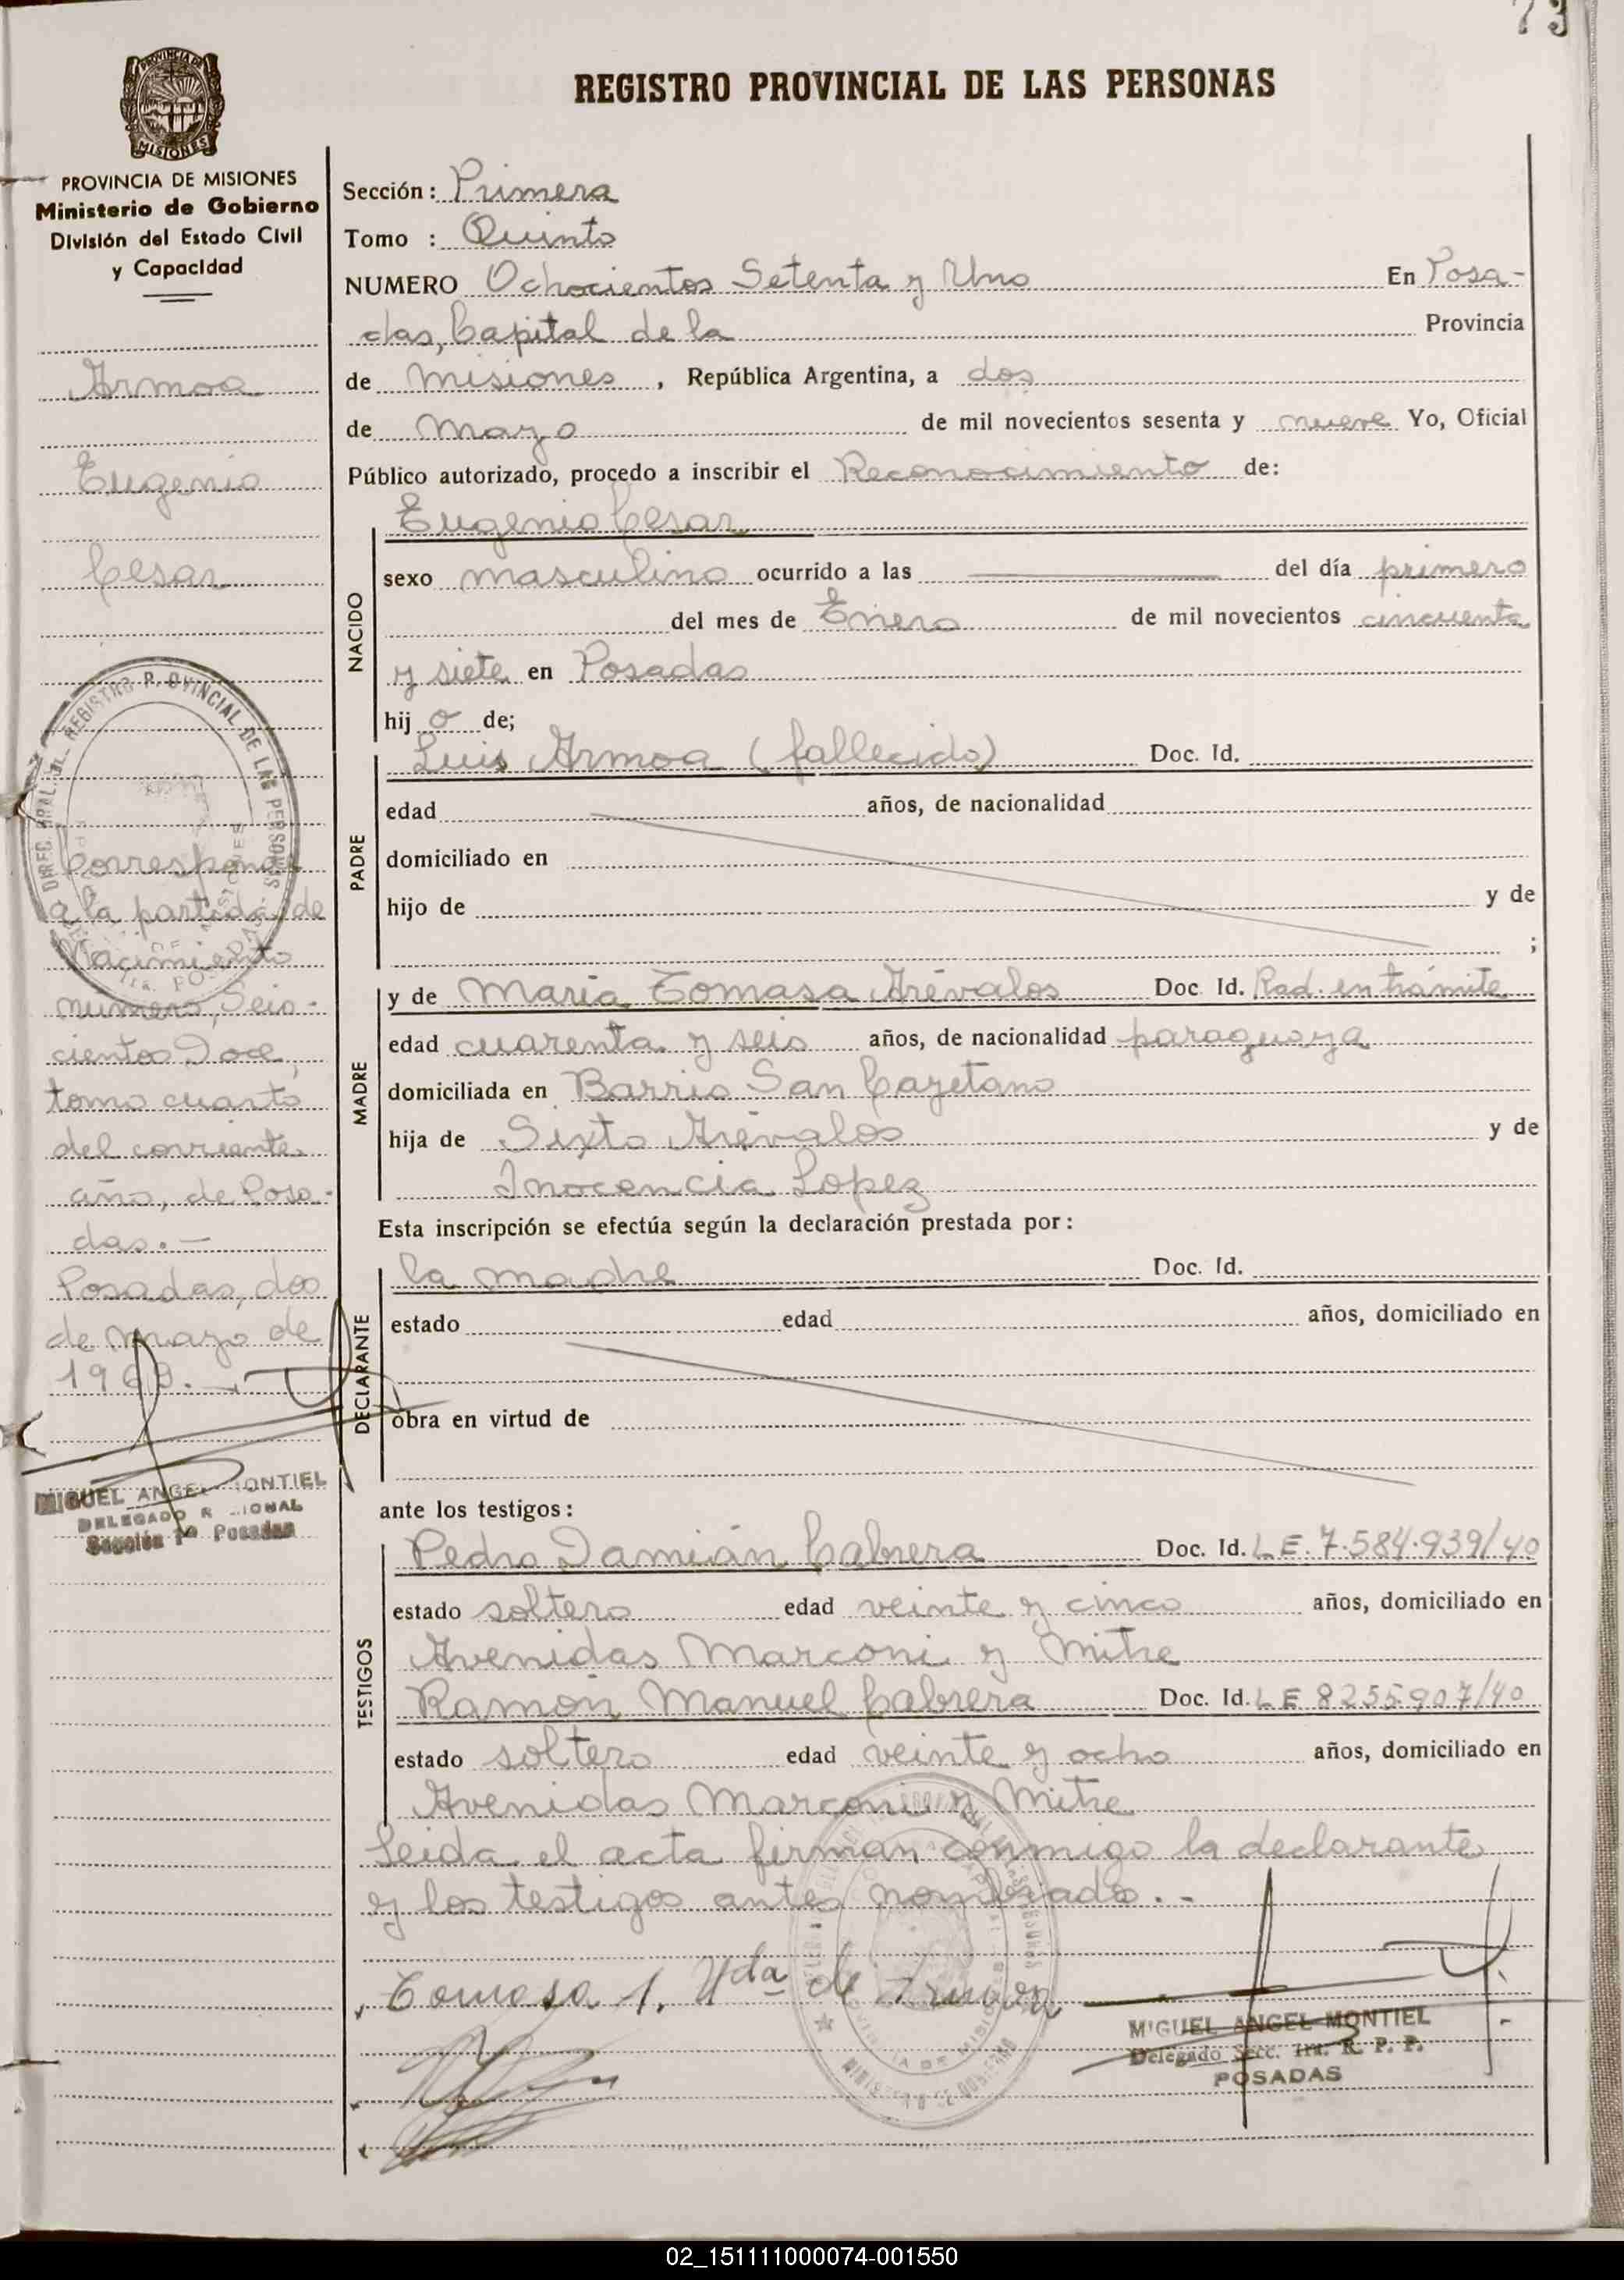 73
REGISTRO PROVINCIAL DE LAS PERSONAS
MISIONES
PROVINCIA DE MISIONES
Ministerio de Gobierno
División del Estado Civil
y Capacidad
Armoa
Eugenio
Cesar
Corresponde
a la partida de
Nacimiento
número, Seis-
cientos Doce,
tomo cuarto
del corriente
año, de Posa-
das.-
Posadas, dos
de mayo de
1969.-
MIGUEL ANGEL MONTIEL
DELEGADO R IONAL
Sección 1ª Posadas
Sección: Primera
Tomo : Quinto
NUMERO Ochocientos Setenta y Uno En Posa-
das, Capital de la Provincia
de Misiones, República Argentina, a dos
de Mayo de mil novecientos sesenta y nueve Yo, Oficial
Público autorizado, procedo a inscribir el Reconocimiento de:
NACIDO
Eugenio Cesar
sexo masculino ocurrido a las del día primero
del mes de Enero de mil novecientos cincuenta
y siete en Posadas
hijo de;
PADRE
Luis Armoa (fallecido) Doc. Id.
edad años, de nacionalidad
domiciliado en
hijo de y de
;
MADRE
y de María Tomasa Arévalos Doc. Id. Rad. en trámite
edad cuarenta y seis años, de nacionalidad paraguaya
domiciliada en Barrio San Cayetano
hija de Sixto Arévalos y de
Inocencia Lopez
Esta inscripción se efectúa según la declaración prestada por:
DECLARANTE
la madre Doc. Id.
estado edad años, domiciliado en
obra en virtud de
ante los testigos:
TESTIGOS
Pedro Damián Cabrera Doc. Id. L E. 7.584.939/40
estado soltero edad veinte y cinco años, domiciliado en
Avenidas Marconi y Mitre
Ramón Manuel Cabrera Doc. Id. L E 8255.907/40
estado soltero edad veinte y ocho años, domiciliado en
Avenidas Marconi y Mitre
Leida el acta firman conmigo la declarante
y los testigos antes nombrado.-
Tomasa A. Vda de Armoa
MIGUEL ANGEL MONTIEL
Delegado Secc. 1ra. R. P. P.
POSADAS
02_151111000074-001550